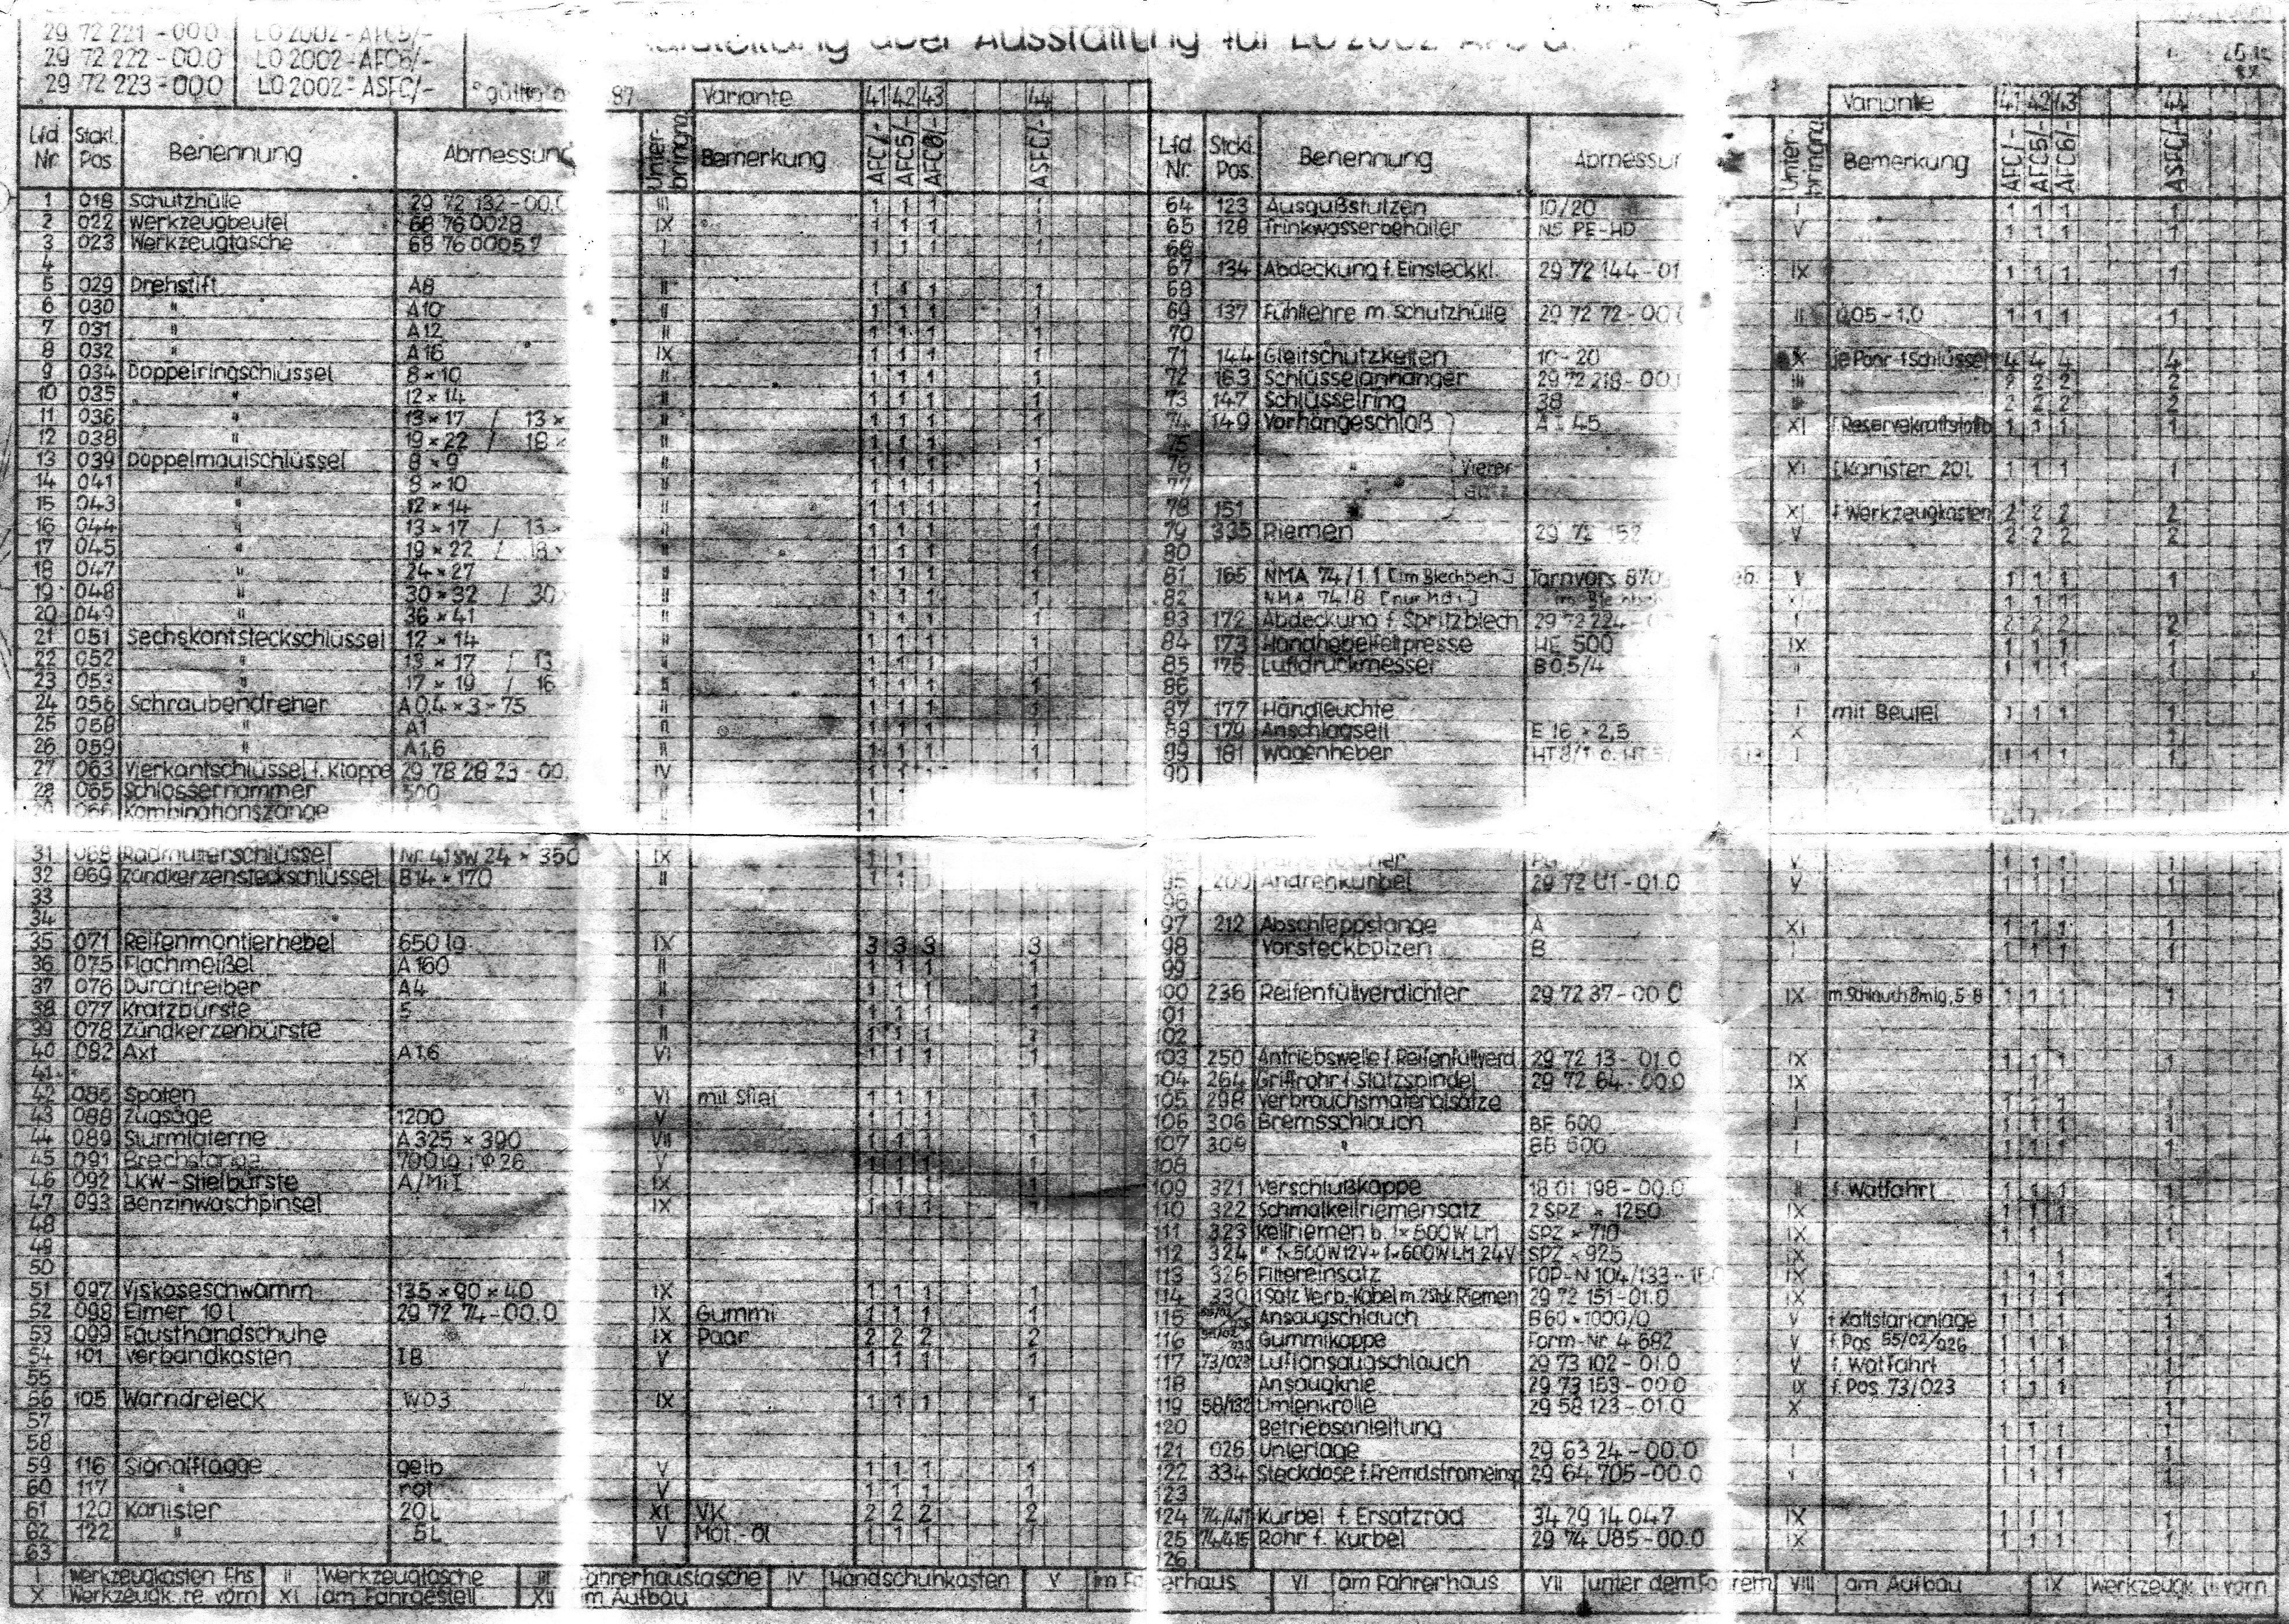 29 72 221 - 00.0 LO 2002 - AFC5/-
29 72 222 - 00.0 LO 2002 - AFC6/-
29 72 223 - 00.0 LO 2002 - ASFC/-
über Ausstattung für LO 2002
gültig 87
Variante 41 42 43 44
Lfd Nr. Stckl. Pos Benennung Abmessung Unterbringng. Bemerkung AFC/- AFC5/- AFC6/- ASFC/-
1 018 Schutzhülle 29 72 132 - 00.0 III 1 1 1 1
2 022 Werkzeugbeutel 68 76 0028 IX 1 1 1 1
3 023 Werkzeugtasche I 1 1 1 1
4
5 029 Drehstift A8 II 1 1 1 1
6 030 " A10 II 1 1 1 1
7 031 " A12 II 1 1 1 1
8 032 " A16 IX 1 1 1 1
9 034 Doppelringschlüssel 8 × 10 II 1 1 1 1
10 035 " 12 × 14 II 1 1 1 1
11 036 " 13 × 17 / 13 × II 1 1 1 1
12 038 " 19 × 22 / 18 × II 1 1 1 1
13 039 Doppelmaulschlüssel 8 × 9 II 1 1 1 1
14 041 " 8 × 10 II 1 1 1 1
15 043 " 12 × 14 II 1 1 1 1
16 044 " 13 × 17 / 13 × II 1 1 1 1
17 045 " 19 × 22 / 18 × II 1 1 1 1
18 047 " 24 × 27 II 1 1 1 1
19 048 " 30 × 32 / 30 II 1 1 1 1
20 049 " 36 × 41 II 1 1 1 1
21 051 Sechskantsteckschlüssel 12 × 14 II 1 1 1 1
22 052 " 13 × 17 / 13 II 1 1 1 1
23 053 " 17 × 19 / 16 II 1 1 1 1
24 056 Schraubendreher A 0,4 × 3 × 75 II 1 1 1 1
25 058 " A1 II 1 1 1 1
26 059 " A1,6 II 1 1 1 1
27 063 Vierkantschlüssel f. Klappe 29 78 28 23 - 00. IV 1 1 1 1
28 065 Schlosserhammer 500 II 1 1
29 066 Kombinationszange II 1
31 068 Radmutterschlüssel Nr. 41 SW 24 × 350 IX 1 1 1
32 069 Zündkerzensteckschlüssel B14 × 170 II 1 1 1
33
34
35 071 Reifenmontierhebel 650 lg IX 3 3 3 3
36 075 Flachmeißel A 160 II 1 1 1 1
37 076 Durchtreiber A4 II 1 1 1 1
38 077 Kratzbürste 5 I 1 1 1 1
39 078 Zündkerzenbürste II 1 1 1 1
40 082 Axt A1,6 VI 1 1 1 1
41
42 086 Spaten VI mit Stiel 1 1 1 1
43 088 Zugsäge 1200 V 1 1 1 1
44 089 Sturmlaterne A 325 × 390 VII 1 1 1 1
45 091 Brechstange 700 lg; Φ 26 V 1 1 1 1
46 092 LKW-Stielbürste A/Mi I IX 1 1 1 1
47 093 Benzinwaschpinsel IX 1 1 1 1
48
49
50
51 097 Viskoseschwamm 135 × 90 × 40 IX 1 1 1 1
52 098 Eimer 10 l 29 72 74 - 00.0 IX Gummi 1 1 1 1
53 099 Fausthandschuhe IX Paar 2 2 2 2
54 101 Verbandkasten IB V 1 1 1 1
55
56 105 Warndreieck WD3 IX 1 1 1 1
57
58
59 116 Signalflagge gelb V 1 1 1 1
60 117 " rot V 1 1 1 1
61 120 Kanister 20 L XI VK 2 2 2 2
62 122 " 5 L V Mot.-Öl 1 1 1 1
63
Variante 41 42 43 44
Lfd. Nr. Stckl. Pos. Benennung Abmessun Unterbringng. Bemerkung AFC/- AFC5/- AFC6/- ASFC/-
64 123 Ausgußstutzen 10/20 I 1 1 1 1
65 128 Trinkwasserbehälter N5 PE-HD V 1 1 1 1
66
67 134 Abdeckung f. Einsteckkl. 29 72 144 - 01 IX 1 1 1 1
68
69 137 Fühllehre m. Schutzhülle 29 72 72 - 00 II 0,05 - 1,0 1 1 1 1
70
71 144 Gleitschutzketten 10 - 20 X 4 4 4 4
72 163 Schlüsselanhänger 29 72 218 - 00 III 2 2 2 2
73 147 Schlüsselring 38 2 2 2 2
74 149 Vorhängeschloß A 45 XI f. Reservekraftstoffb 1 1 1 1
75
76 " Vierer XI f. Kanister 20 l 1 1 1 1
77 satz
78 151 XI f. Werkzeugkasten 2 2 2 2
79 335 Riemen 29 72 152 V 2 2 2 2
80
81 165 NMA 74/1.1 [im Blechbeh.] Tarnvors. 870 V 1 1 1 1
82 NMA 74/8 1 1 1
83 172 Abdeckung f. Spritzblech 29 72 224 - I 2 2 2 2
84 173 Handhebelfettpresse HE 500 IX 1 1 1 1
85 175 Luftdruckmesser B 0,5/4 II 1 1 1 1
86
87 177 Handleuchte I mit Beutel 1 1 1 1
88 179 Anschlagseil E 16 × 2,5 X 1
89 181 Wagenheber I 1 1 1 1
90
95 200 Andrehkurbel 29 72 U1 - 01.0 V 1 1 1 1
96
97 212 Abschleppstange A XI 1 1 1 1
98 Vorsteckbolzen B I 1 1 1 1
99
100 236 Reifenfüllverdichter 29 72 37 - 00.0 IX m. Schlauch 8m lg. 5-8 1 1 1 1
101
102
103 250 Antriebswelle f. Reifenfüllverd. 29 72 13 - 01.0 IX 1 1 1 1
104 264 Griffrohr f. Stützspindel 29 72 64 - 00.0 IX 1
105 298 Verbrauchsmaterialsätze I 1 1 1 1
106 306 Bremsschlauch BF 600 I 1 1 1 1
107 309 " BB 600 I 1 1 1 1
108
109 321 Verschlußkappe 18 01 198 - 00.0 II f. Watfahrt 1 1 1 1
110 322 Schmalkeilriemensatz 2 SPZ × 1250 IX 1 1 1 1
111 323 Keilriemen b. 1×500W LM SPZ × 710 IX 1 1 1
112 324 " 1×500W 12V + 1×600W LM 24V SPZ × 925 IX 1
113 326 Filtereinsatz FOP-N 104/133 - IX 1 1 1 1
114 330 1 Satz Verb.-Kabel m. 2Stck. Riemen 29 72 151 - 01.0 IX 1 1 1 1
115 Ansaugschlauch B 60 × 1000/0 V f. Kaltstartanlage 1 1 1 1
116 Gummikappe Form-Nr. 4 682 V f. Pos. 55/02/026 1 1 1 1
117 73/023 Luftansaugschlauch 29 73 102 - 01.0 V f. Watfahrt 1 1 1 1
118 Ansaugknie 29 73 153 - 00.0 IX f. Pos. 73/023 1 1 1 1
119 58/132 Umlenkrolle 29 58 123 - 01.0 X 1
120 Betriebsanleitung 1 1 1 1
121 026 Unterlage 29 63 24 - 00.0 I 1 1 1 1
122 334 Steckdose f. Fremdstromeinsp. 29 64 705 - 00.0 1 1 1 1
123
124 74/411 Kurbel f. Ersatzrad 34 29 14 047 IX 1 1 1 1
125 74/415 Rohr f. Kurbel 29 74 U85 - 00.0 IX 1 1 1 1
126
I Werkzeugkasten Fhs II Werkzeugtasche III ahrerhaustasche IV Handschuhkasten V im Fa erhaus VI am Fahrerhaus VII unter dem Fa rerh VIII am Aufbau IX Werkzeugk. li. vorn
X Werkzeugk. re. vorn XI am Fahrgestell XII im Aufbau